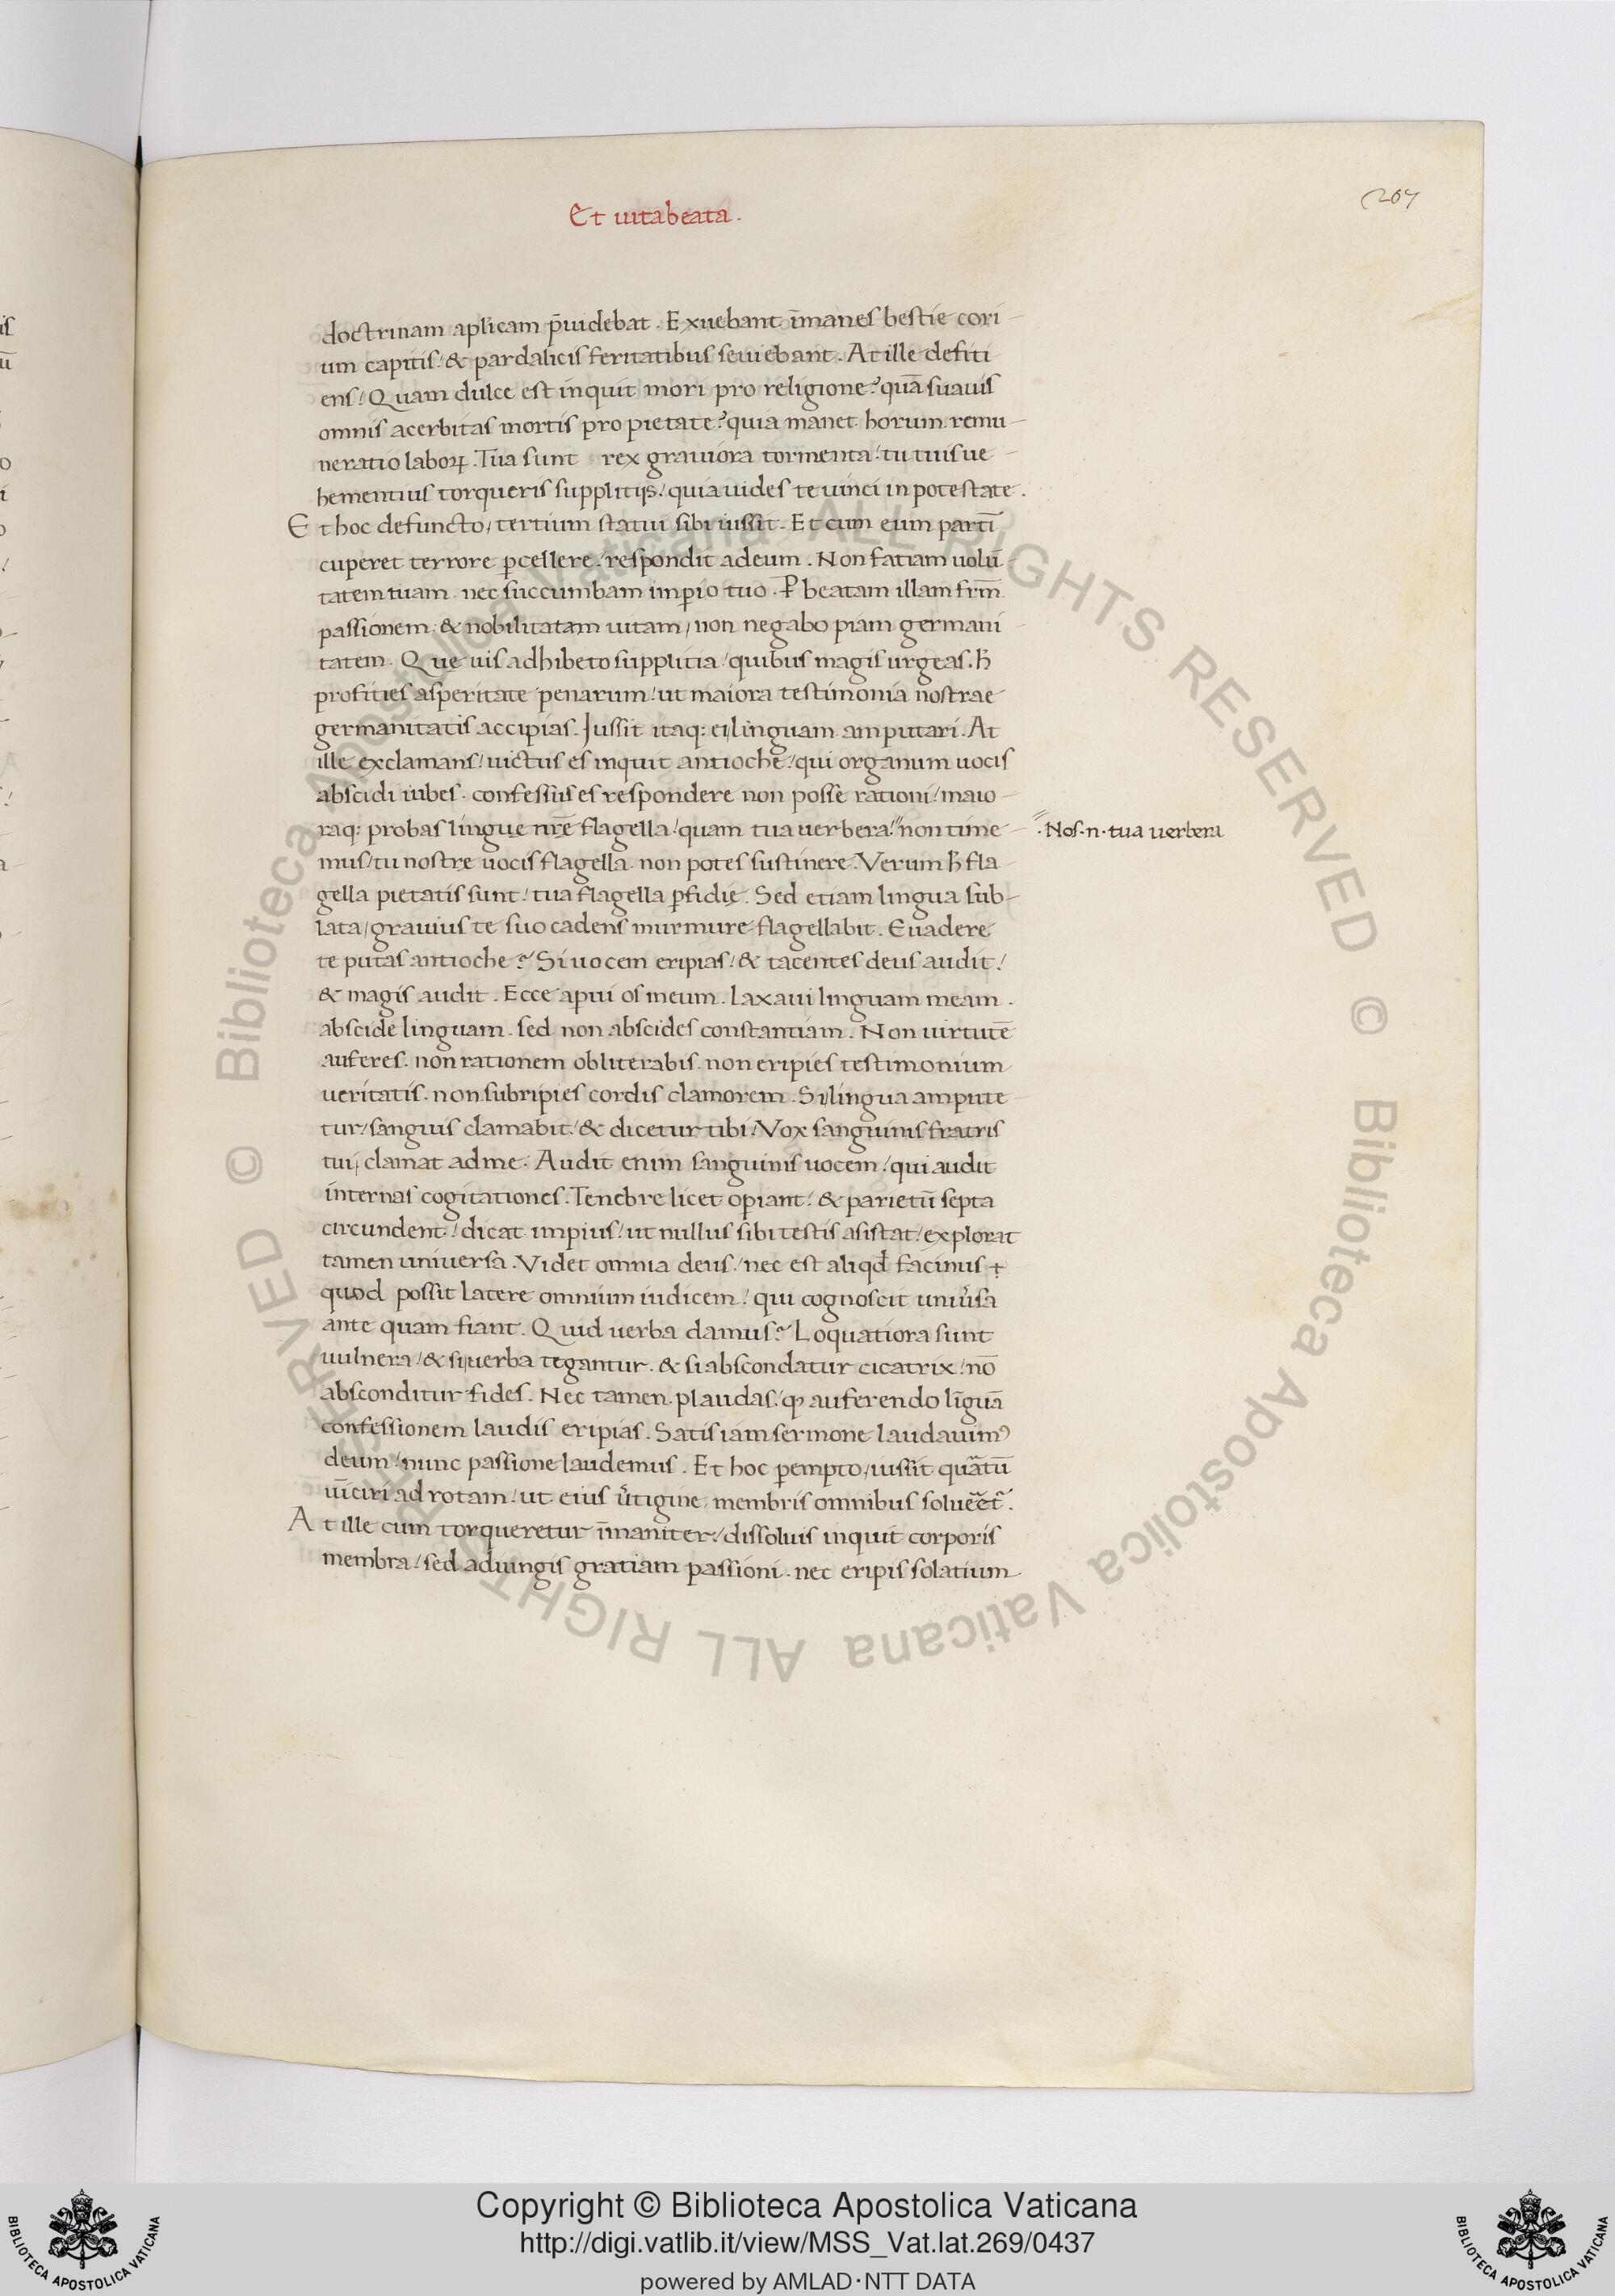 Et uita beata.
207
doctrinam aplicam p̄uidebat. Exuebant īmanes bestie cori
um capitis/ & pardalicis feritatibus seuiebant. At ille defiti
ens/ Quam dulce est inquit mori pro religione? quā suauis
omnis acerbitas mortis pro pietate? quia manet horum remu
neratio laboꝝ. Tua sunt rex grauiora tormenta/ tu tuis ue
hementius torqueris supplitijs/ quia uides te uinci in potestate.
Et hoc defuncto/ tertium statui sibi iussit. Et cum eum partī
cuperet terrore ꝑcellere/ respondit ad eum. Non fatiam uolū
tatem tuam. nec succumbam imꝑio tuo. Ꝑ beatam illam frm̄
passionem. & nobilitatam uitam/ non negabo piam germani
tatem. Que uis adhibeto supplitia/ quibus magis urgeas. h̄
profities asperitate penarum/ ut maiora testimonia nostrae
germanitatis accipias. Jussit itaq: ei linguam amputari. At
ille exclamans/ uictus es inquit antioche/ qui organum uocis
abscidi iubes. confessus es respondere non posse rationi/ maio
raq: probas lingue nr̄e flagella/ quam tua uerbera/ non time
·Nos·n·tua uerbera
mus/ tu nostre uocis flagella non potes sustinere. Verum h̄ fla
gella pietatis sunt/ tua flagella ꝑfidię. Sed etiam lingua sub
lata/ grauius te suo cadens murmure flagellabit. Euadere
te putas antioche? Si uocem eripias/ & tacentes deus audit/
& magis audit. Ecce aperui os meum. laxaui linguam meam.
abscide linguam. sed non abscides constantiam. Non uirtutē
auferes. non rationem obliterabis. non eripies testimonium
ueritatis. non subripies cordis clamorem. Si lingua ampute
tur/ sanguis clamabit/ & dicetur tibi/ Vox sanguinis fratris
tui/ clamat ad me. Audit enim sanguinis uocem/ qui audit
internas cogitationes. Tenebre licet oꝑiant/ & parietū septa
circundent/ dicat impius/ ut nullus sibi testis asistat/ explorat
tamen uniuersa. Videt omnia deus/ nec est aliqd̄ facinus
quod possit latere omnium iudicem/ qui cognoscit uniu̓sa
ante quam fiant. Quid uerba damus? Loquatiora sunt
uulnera/ & si uerba tegantur. & si abscondatur cicatrix/ nō
absconditur fides. Nec tamen plaudas/ ꝙ auferendo līguā
confessionem laudis eripias. Satis iam sermone laudauimꝰ
deum/ nunc passione laudemus. Et hoc ꝑempto/ iussit quātū
uīciri ad rotam/ ut eius u̓tigine/ membris omnibus solueret̄.
At ille cum torqueretur īmaniter/ dissoluis inquit corporis
membra/ sed adiungis gratiam passioni. nec eripis solatium
Copyright © Biblioteca Apostolica Vaticana
http://digi.vatlib.it/view/MSS_Vat.lat.269/0437
powered by AMLAD·NTT DATA